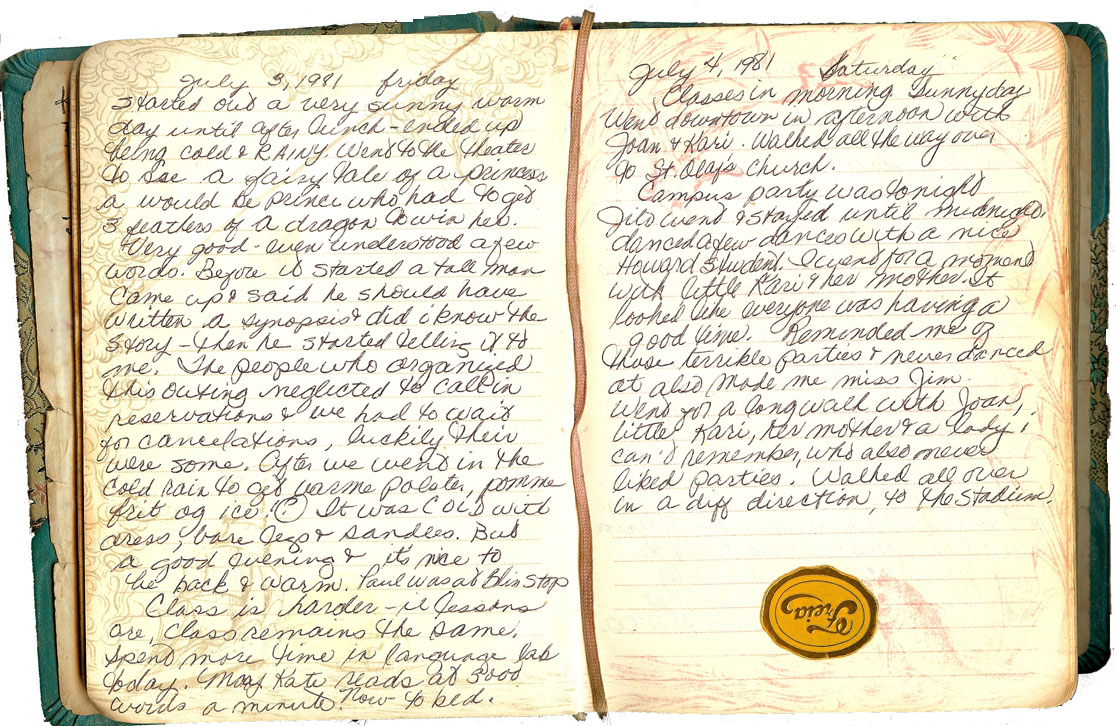 July 3, 1981 friday
Started out a very sunny warm
day until after lunch - ended up
being cold & RAINY. Went to the theater
to see a fairy tale of a princess
a would be prince who had to get
3 feathers of a dragon to win her.
Very good - even understood a few
words. Before it started a tall man
came up & said he should have
written a synopsis & did i know the
story - then he started telling it to
me. The people who organized
this outing neglected to call in
reservations & we had to wait
for cancelations, luckily their
were some. After we went in the
cold rain to get varme polster, pomme
frit og ice. It was COLD with
dress, bare legs & sandles. But
a good evening & it's nice to
be back & warm. Paul was at Blis stop
Class is harder - ie lessons
are, class remains the same.
Spent more time in language lab
today. Mary Kate reads at 3000
words a minute. Now to bed.
July 4, 1981 Saturday
Classes in morning Sunny day
Went downtown in afternoon with
Joan & Kari. Walked all the way over
to St. Olaf's Church.
Campus party was tonight
Jito went & stayed until midnight,
danced a few dances with a nice
Howard Student. I went for a moment
with little Kari & her mother. It
looked like everyone was having a
good time. Reminded me of
those terrible parties i never danced
at also made me miss Jim.
Went for a long walk with Joan,
little Kari, her mother & a lady i
can't remember, who also never
liked parties. Walked all over
in a diff direction, to the Stadium.
Freia